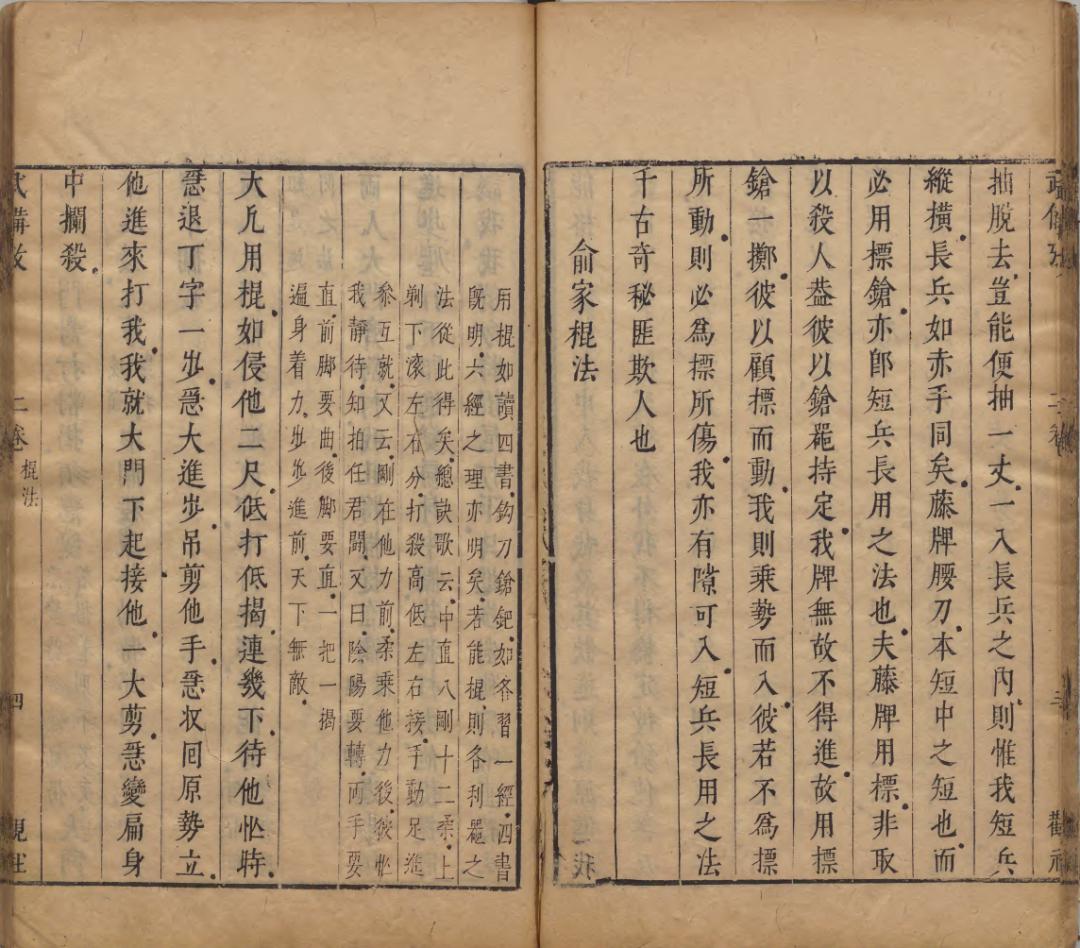 抽脫去豈能便抽一丈一入長兵之內則惟我短兵
縱橫長兵如赤手同矣藤牌腰刀本短中之短也而
必用標鎗亦卽短兵長用之法也夫藤牌用標非取
以殺人葢彼以鎗器持定我牌無故不得進故用標
鎗一擲彼以顧標而動我則乘勢而入彼若不為標
所動則必為標所傷我亦有隙可入短兵長用之法
千古奇秘匪欺人也
俞家棍法
用棍如讀四書鈎刀鎗鈀如各習一經四書
旣明六經之理亦明矣若能棍則各利器之
法從此得矣總訣歌云中直八剛十二柔上
剃下滾左右分打殺高低左右接手動足進
參互就又云剛在他力前柔乘他力後彼忙
我靜待知拍任君鬪又曰陰陽要轉兩手要
直前脚要曲後脚要直一把一揭
遍身着力步步進前天下無敵
大凡用棍如侵他二尺低打低揭連幾下待他忙時
急退丁字一步急大進步吊剪他手急收囘原勢立
他進來打我我就大門下起接他一大剪急變扁身
中攔殺
武備攷 二卷 棍法 四